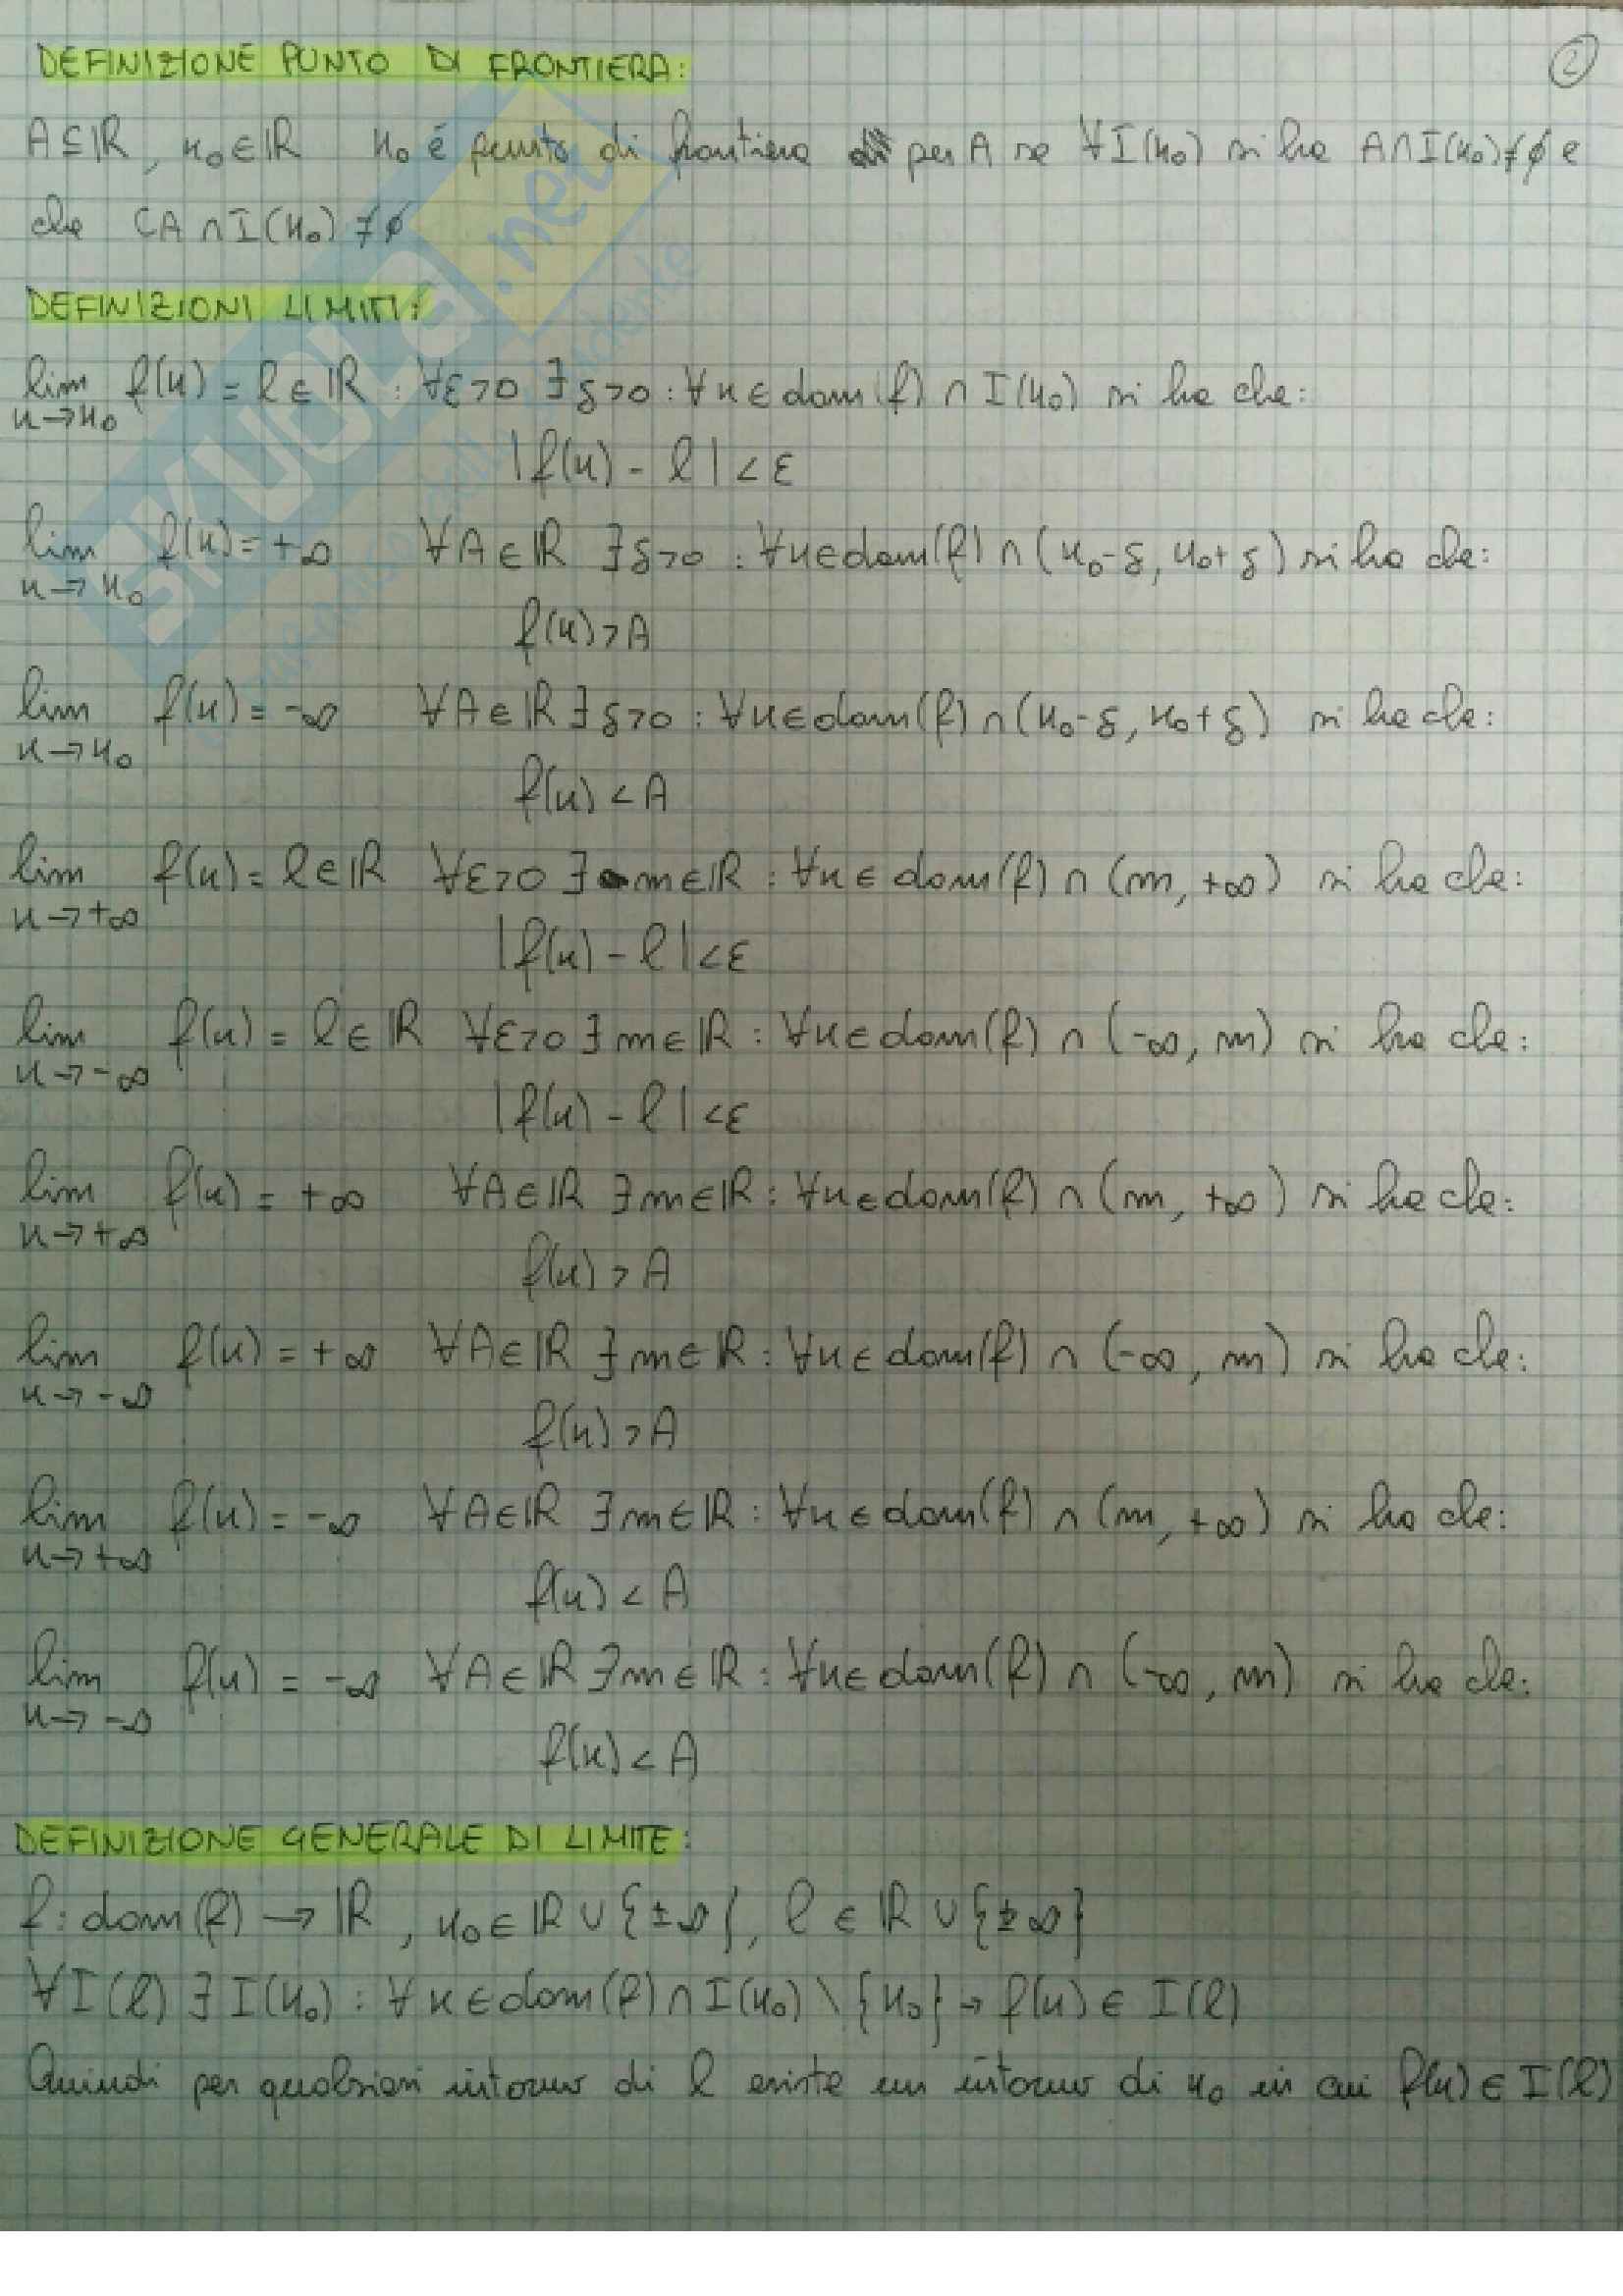 DEFINIZIONE PUNTO DI FRONTIERA:
2
A⊆ℝ, x₀∈ℝ x₀ é punto di frontiera per A se ∀I(x₀) si ha A∩I(x₀)≠∅ e
che CA∩I(x₀)≠∅
DEFINIZIONI LIMITI:
lim x→x₀ f(x) = l∈ℝ : ∀ε>0 ∃δ>0 : ∀x∈dom(f) ∩ I(x₀) si ha che:
|f(x) - l| < ε
lim x→x₀ f(x) = +∞ ∀A∈ℝ ∃δ>0 : ∀x∈dom(f) ∩ (x₀-δ, x₀+δ) si ha che:
f(x) > A
lim x→x₀ f(x) = -∞ ∀A∈ℝ ∃δ>0 : ∀x∈dom(f) ∩ (x₀-δ, x₀+δ) si ha che:
f(x) < A
lim x→+∞ f(x) = l∈ℝ ∀ε>0 ∃ m∈ℝ : ∀x∈dom(f) ∩ (m, +∞) si ha che:
|f(x) - l| < ε
lim x→-∞ f(x) = l∈ℝ ∀ε>0 ∃ m∈ℝ : ∀x∈dom(f) ∩ (-∞, m) si ha che:
|f(x) - l| < ε
lim x→+∞ f(x) = +∞ ∀A∈ℝ ∃m∈ℝ : ∀x∈dom(f) ∩ (m, +∞) si ha che:
f(x) > A
lim x→-∞ f(x) = +∞ ∀A∈ℝ ∃m∈ℝ : ∀x∈dom(f) ∩ (-∞, m) si ha che:
f(x) > A
lim x→+∞ f(x) = -∞ ∀A∈ℝ ∃m∈ℝ : ∀x∈dom(f) ∩ (m, +∞) si ha che:
f(x) < A
lim x→-∞ f(x) = -∞ ∀A∈ℝ ∃m∈ℝ : ∀x∈dom(f) ∩ (-∞, m) si ha che:
f(x) < A
DEFINIZIONE GENERALE DI LIMITE:
f: dom(f) → ℝ, x₀∈ℝ∪{±∞}, l∈ℝ∪{±∞}
∀I(l) ∃I(x₀) : ∀x∈dom(f)∩I(x₀)\{x₀} → f(x)∈I(l)
Quindi per qualsiasi intorno di l esiste un intorno di x₀ in cui f(x)∈I(l)
SKUOLa.net